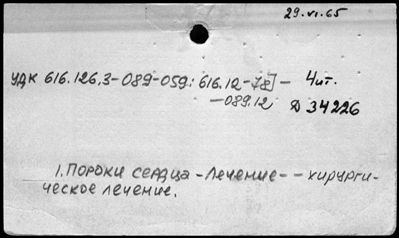 29.VI.65
УДК 616.126,3-089-059:616.12-78]- 4 ит.
-089.12 Д 34226
1. Пороки сердца - Лечение - - хирурги-
ческое лечение.